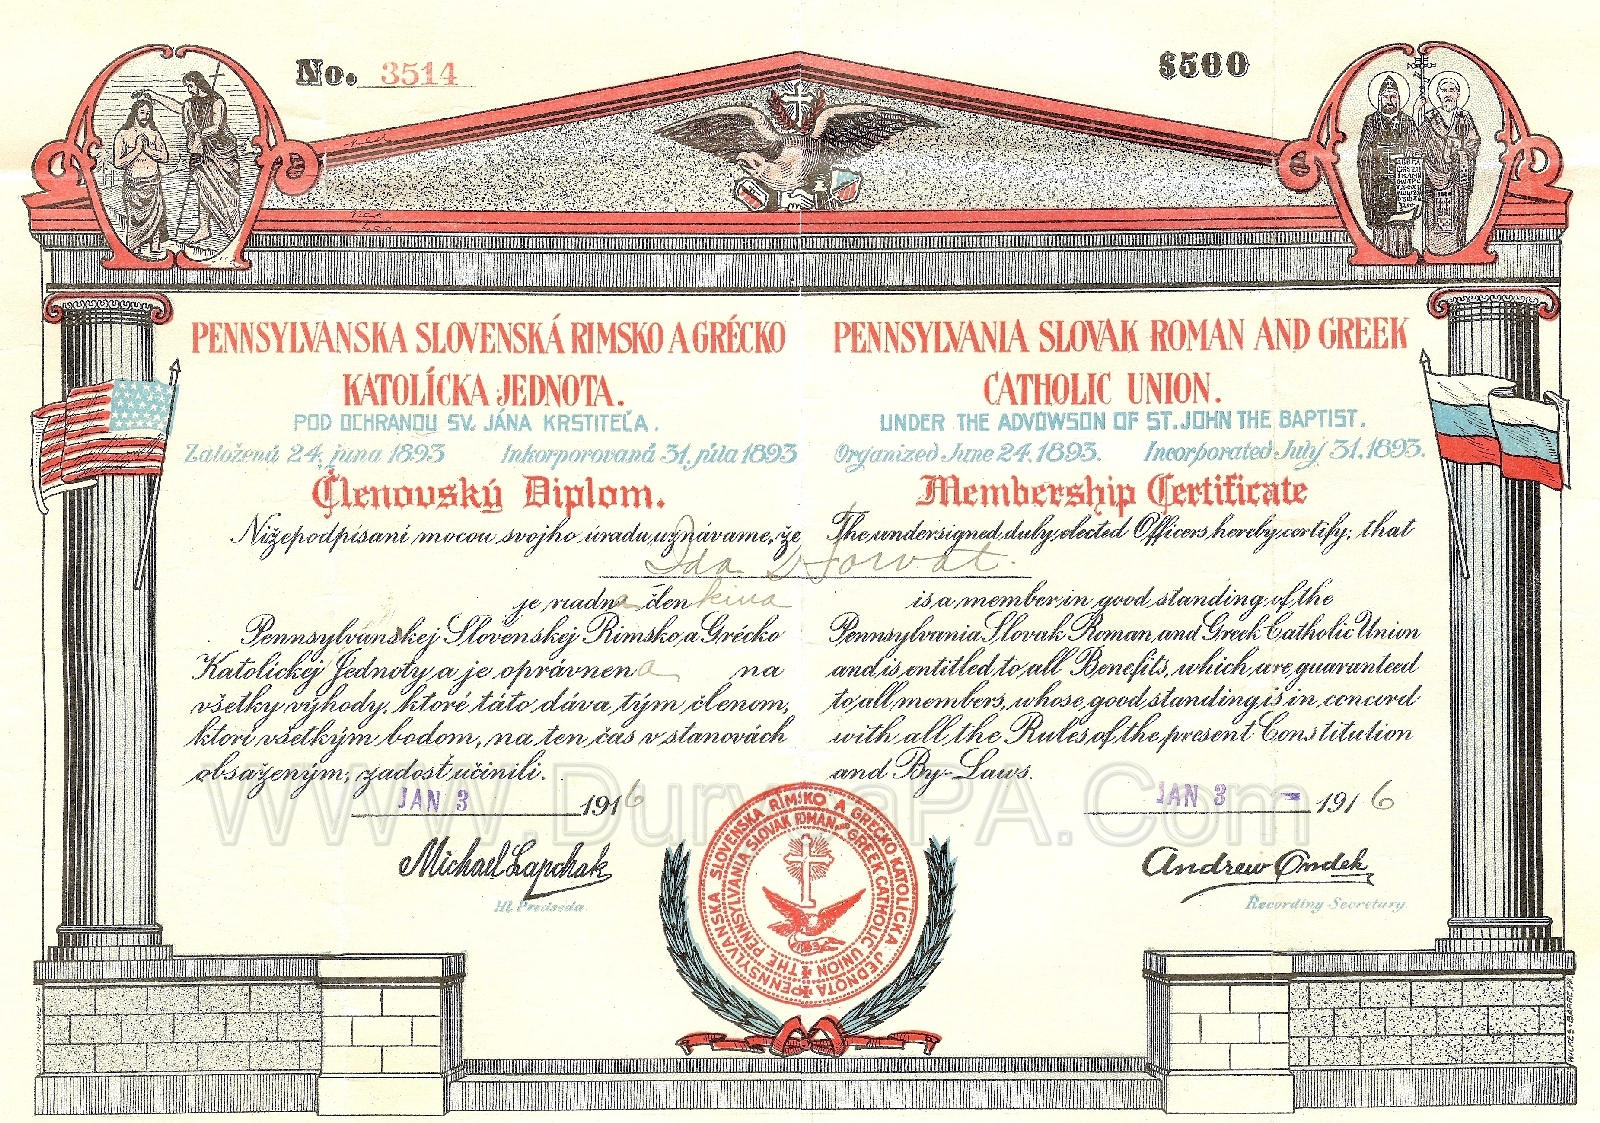 No. 3514
$500
PENNSYLVANSKA SLOVENSKÁ RIMSKO A GRÉCKO
KATOLÍCKA JEDNOTA.
POD OCHRANOU SV. JÁNA KRSTITEĽA.
Založená 24. juna 1893 Inkorporovaná 31. júla 1893
Členovský Diplom.
Nižepodpísaní mocou svojho úradu uznávame, že
PENNSYLVANIA SLOVAK ROMAN AND GREEK
CATHOLIC UNION.
UNDER THE ADVOWSON OF ST. JOHN THE BAPTIST.
Organized June 24. 1893. Incorporated July 31. 1893.
Membership Certificate
The undersigned duly elected Officers hereby certify, that
Ida Horvat.
je riadna členkina
Pennsylvanskej Slovenskej Rimsko a Grécko
Katolíckej Jednoty a je oprávnena na
všetky výhody, ktoré táto dáva tým členom,
ktorí všetkým bodom, na ten čas v stanovách
obsaženým, zadosť učinili.
JAN 3 1916
Michael Lapchak
Hl. Predseda
is a member in good standing of the
Pennsylvania Slovak Roman and Greek Catholic Union
and is entitled to all Benefits, which are guaranteed
to all members, whose good standing is in concord
with all the Rules of the present Constitution
and By-Laws.
JAN 3 - 1916
Andrew
Recording Secretary
PENNSYLVANSKA SLOVENSKA RIMSKO A GRÉCKO KATOLÍCKA JEDNOTA
THE PENNSYLVANIA SLOVAK ROMAN AND GREEK CATHOLIC UNION
WILKES-BARRE, PA.
www.DuryeaPA.Com